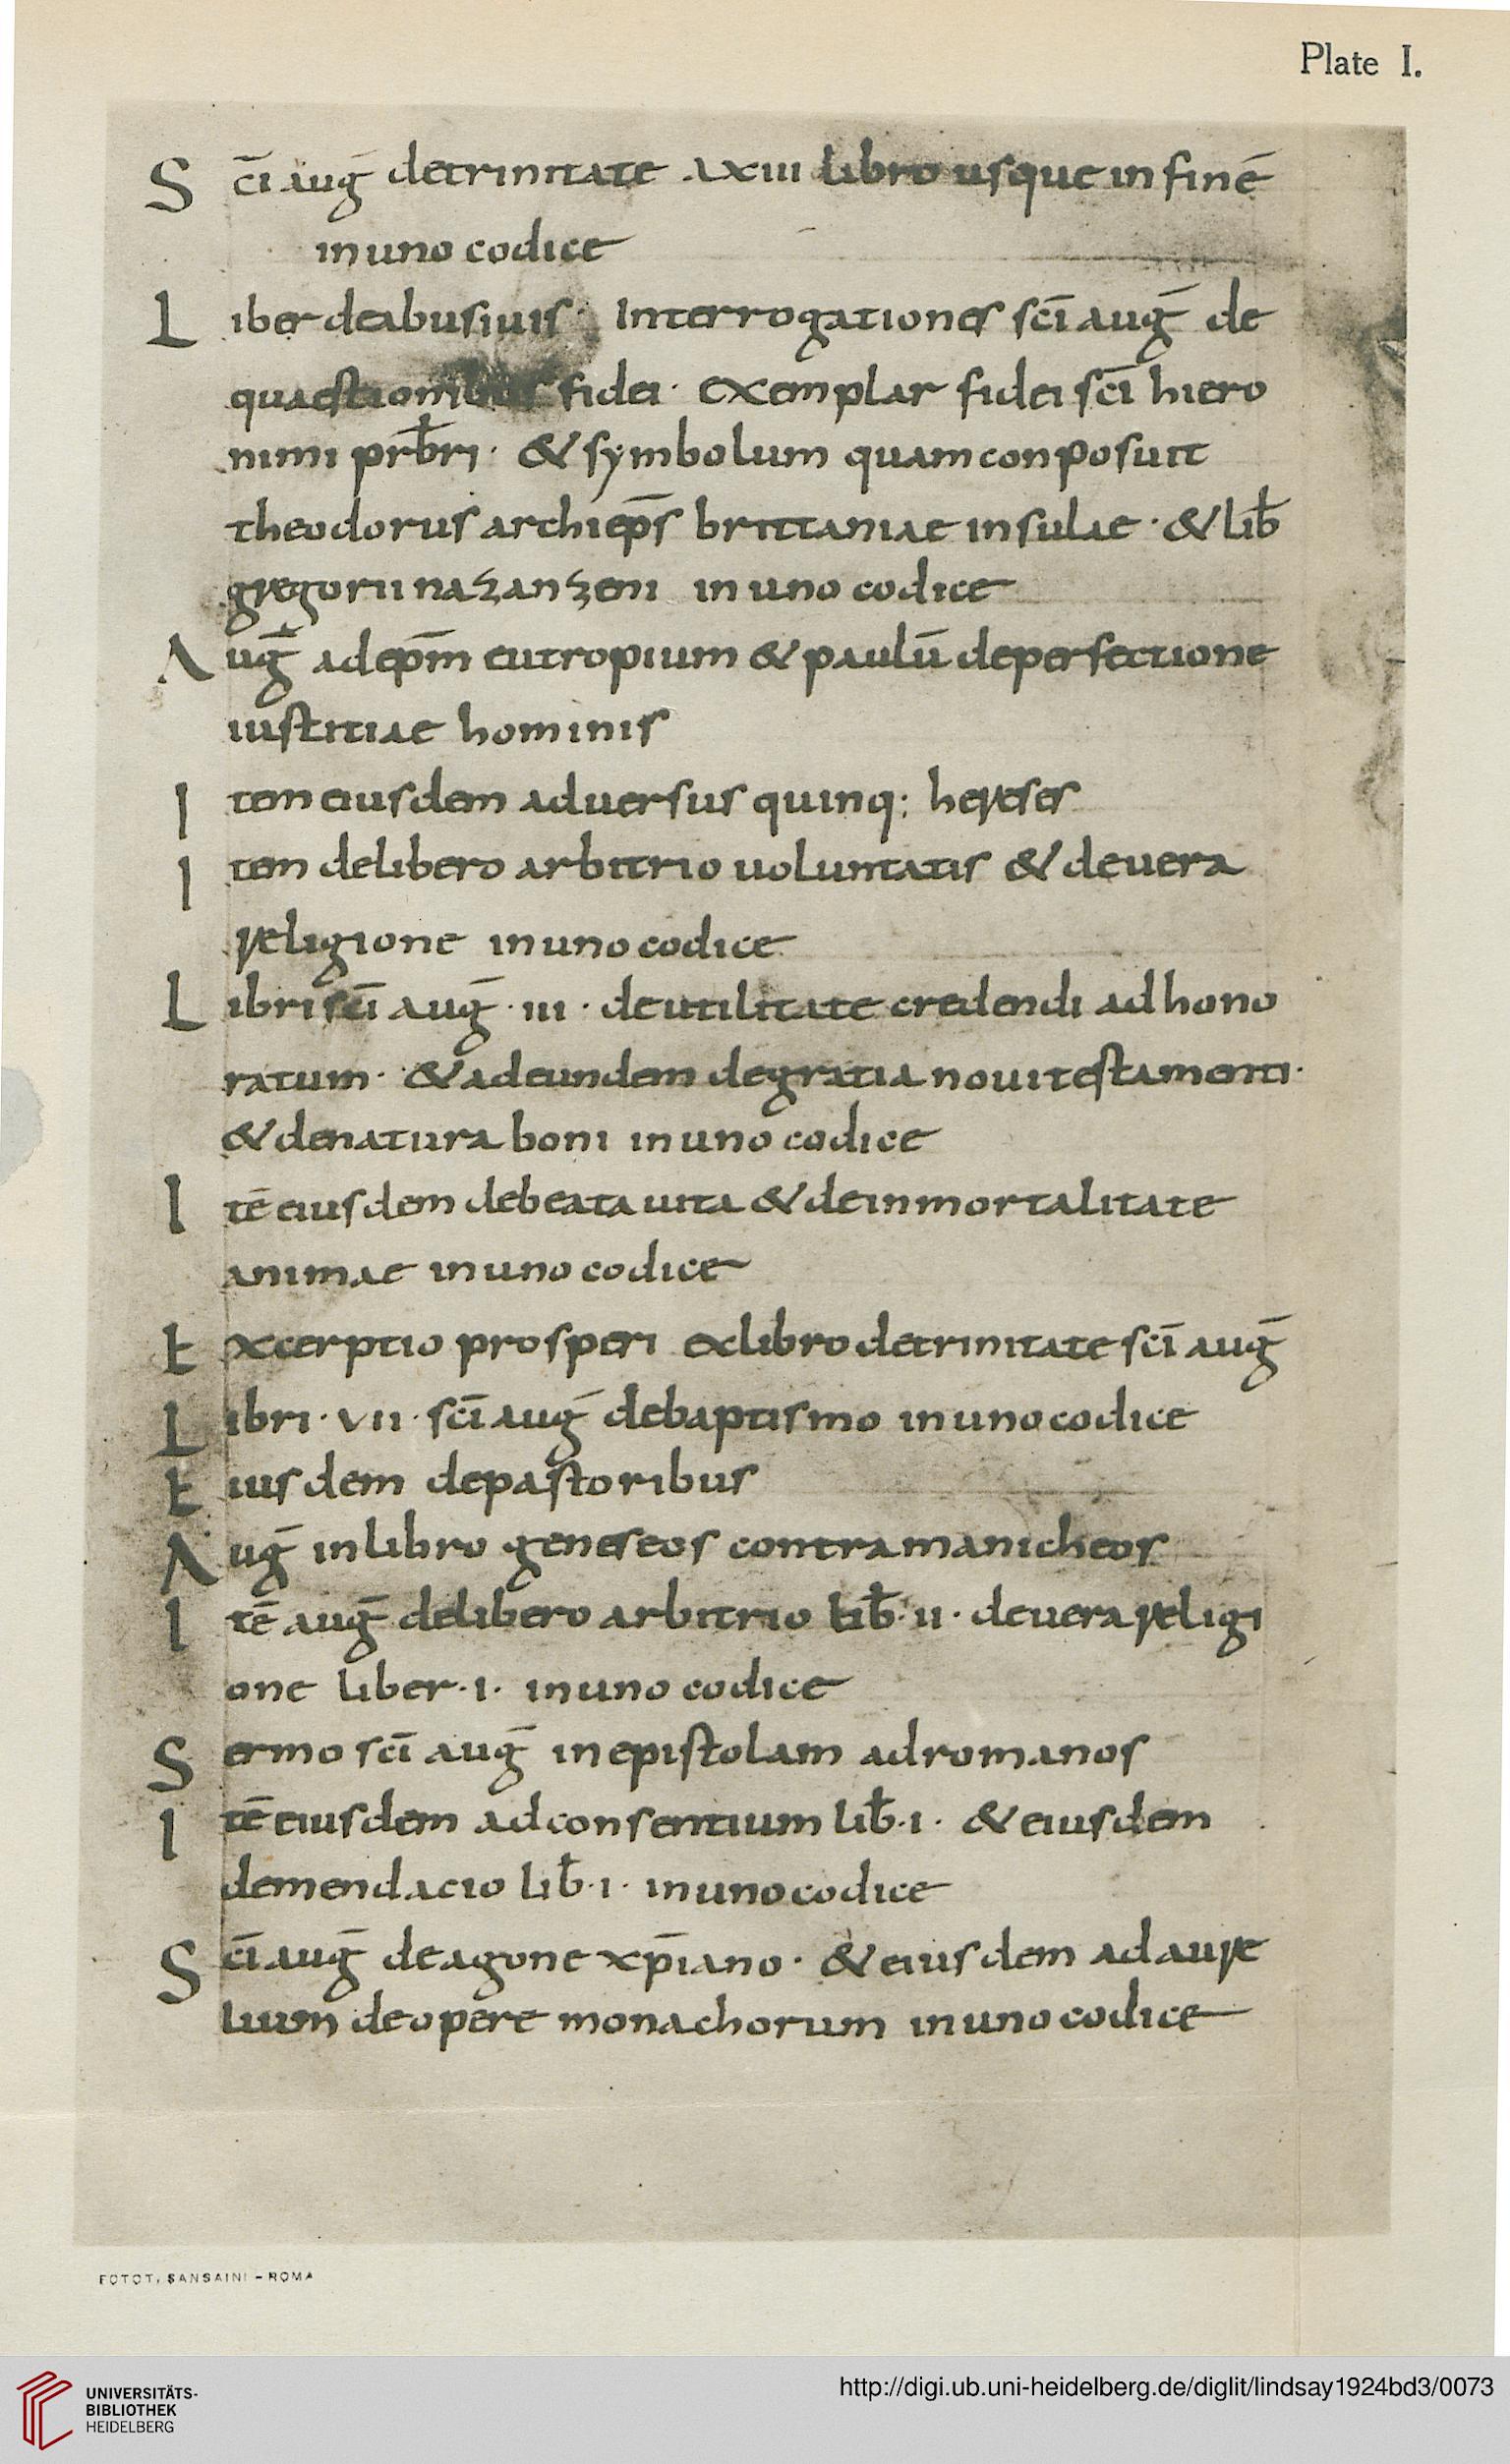 Plate I.
S cī auḡ detrinitate. a xiii libro usque in finē
in uno codice
L iber deabusiuis · Interrogationes scī auḡ de
quaestionibus fidei · exemplar fidei scī hiero
nimi prb̄ri · & symbolum quam conposuit
theodorus archiep̄s brittaniae insulae · & lib̄
gregorii nazanzeni in uno codice
A uḡ ad ep̄m eutropium & paulū de perfectione
iustitiae hominis
I tem eiusdem aduersus quinq; hereses
I tem de libero arbitrio uoluntatis & de uera
religione in uno codice
L ibri scī auḡ · iii · de utilitate credendi ad hono
ratum · & ad eundem de gratia noui testamenti ·
& de natura boni in uno codice
I tē eiusdem de beata uita & de inmortalitate
animae in uno codice
E xcerptio prosperi ex libro de trinitate scī auḡ
L ibri · vii · scī auḡ de baptismo in uno codice
E iusdem de pastoribus
A uḡ in libro geneseos contra manicheos
I tē auḡ de libero arbitrio lib̄ · ii · de uera religi
one liber · i · in uno codice
S ermo scī auḡ in epistolam ad romanos
I tē eiusdem ad consentium lib̄ · i · & eiusdem
de mendacio lib̄ · i · in uno codice
S cī auḡ de agone xp̄iano · & eiusdem ad aure
lium de opere monachorum in uno codice
FOTOT. SANSAINI – ROMA
UNIVERSITÄTS-
BIBLIOTHEK
HEIDELBERG
http://digi.ub.uni-heidelberg.de/diglit/lindsay1924bd3/0073